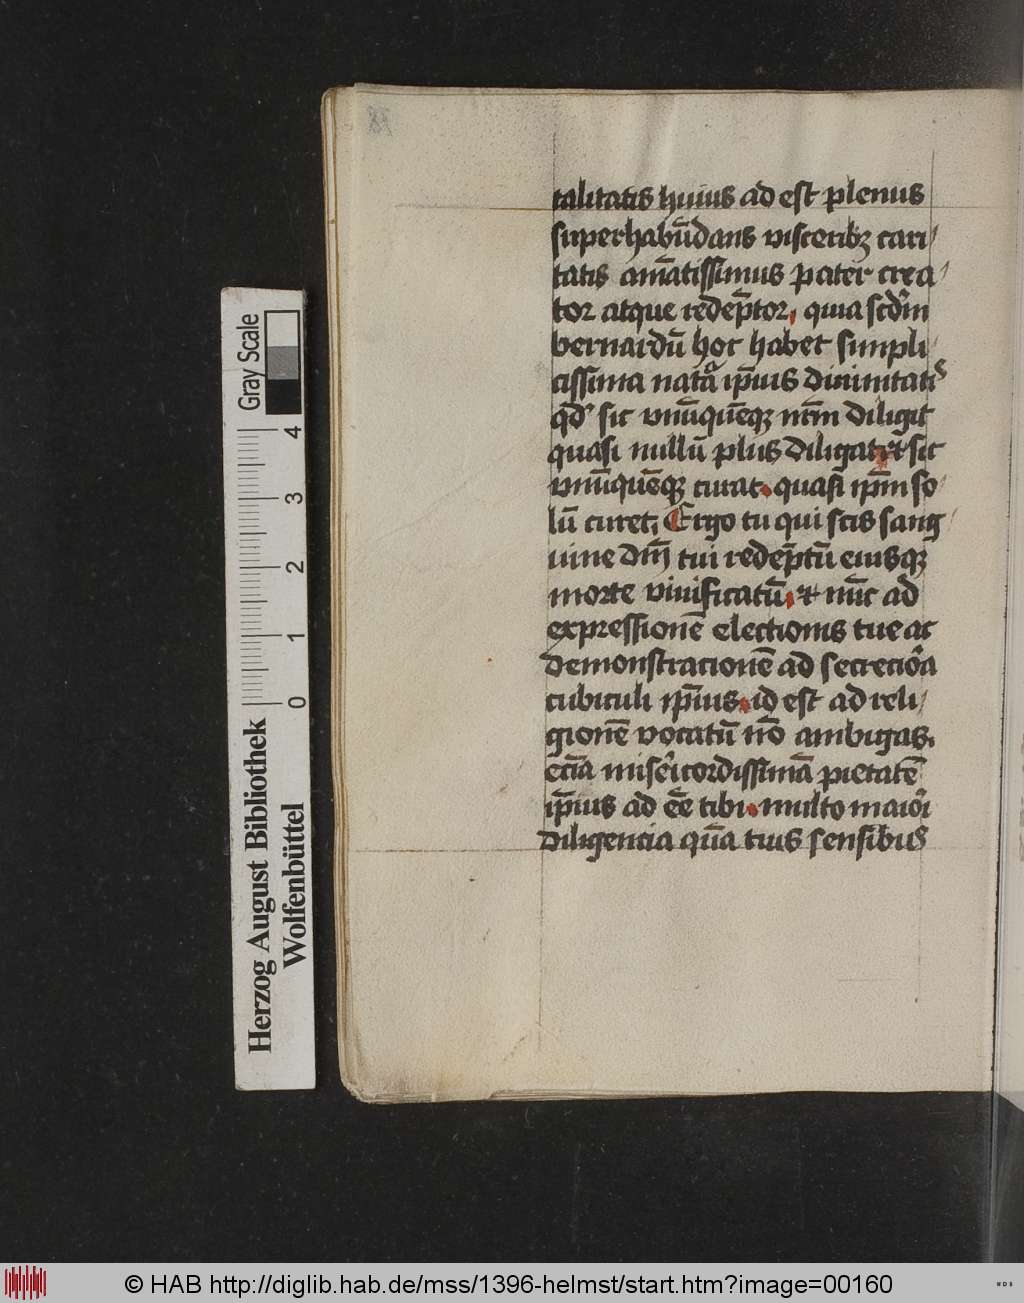 talitatis huius ad est plenus
superhabūdans visceribꝫ cari
tatis amātissimus pater crea
tor atque redēptor, quia scdm̄
bernardū hoc habet simpli
cissima natᵃ ip̄ius diuinitatis
qd' sic vnūquēqꝫ nrm̄ diligit
quasi nullū plus diligat ⁊ sic
vnūquēqꝫ curat. quasi ip̄m so
lū curet, Ergo tu qui scis sang
uine dn̄i tui redēptū eiusqꝫ
morte viuificatū. ⁊ nūc ad
expressionē electionis tue ac
demonstracionē ad secreciōa
cubiculi ip̄ius. id est ad reli
gionē vocatū nō ambigas.
eciā misericordissimā pietatē
ip̄ius ad eē tibi. multo maiōi
diligencia quā tuis sensibus
Gray Scale
4
3
2
1
0
Herzog August Bibliothek
Wolfenbüttel
© HAB http://diglib.hab.de/mss/1396-helmst/start.htm?image=00160